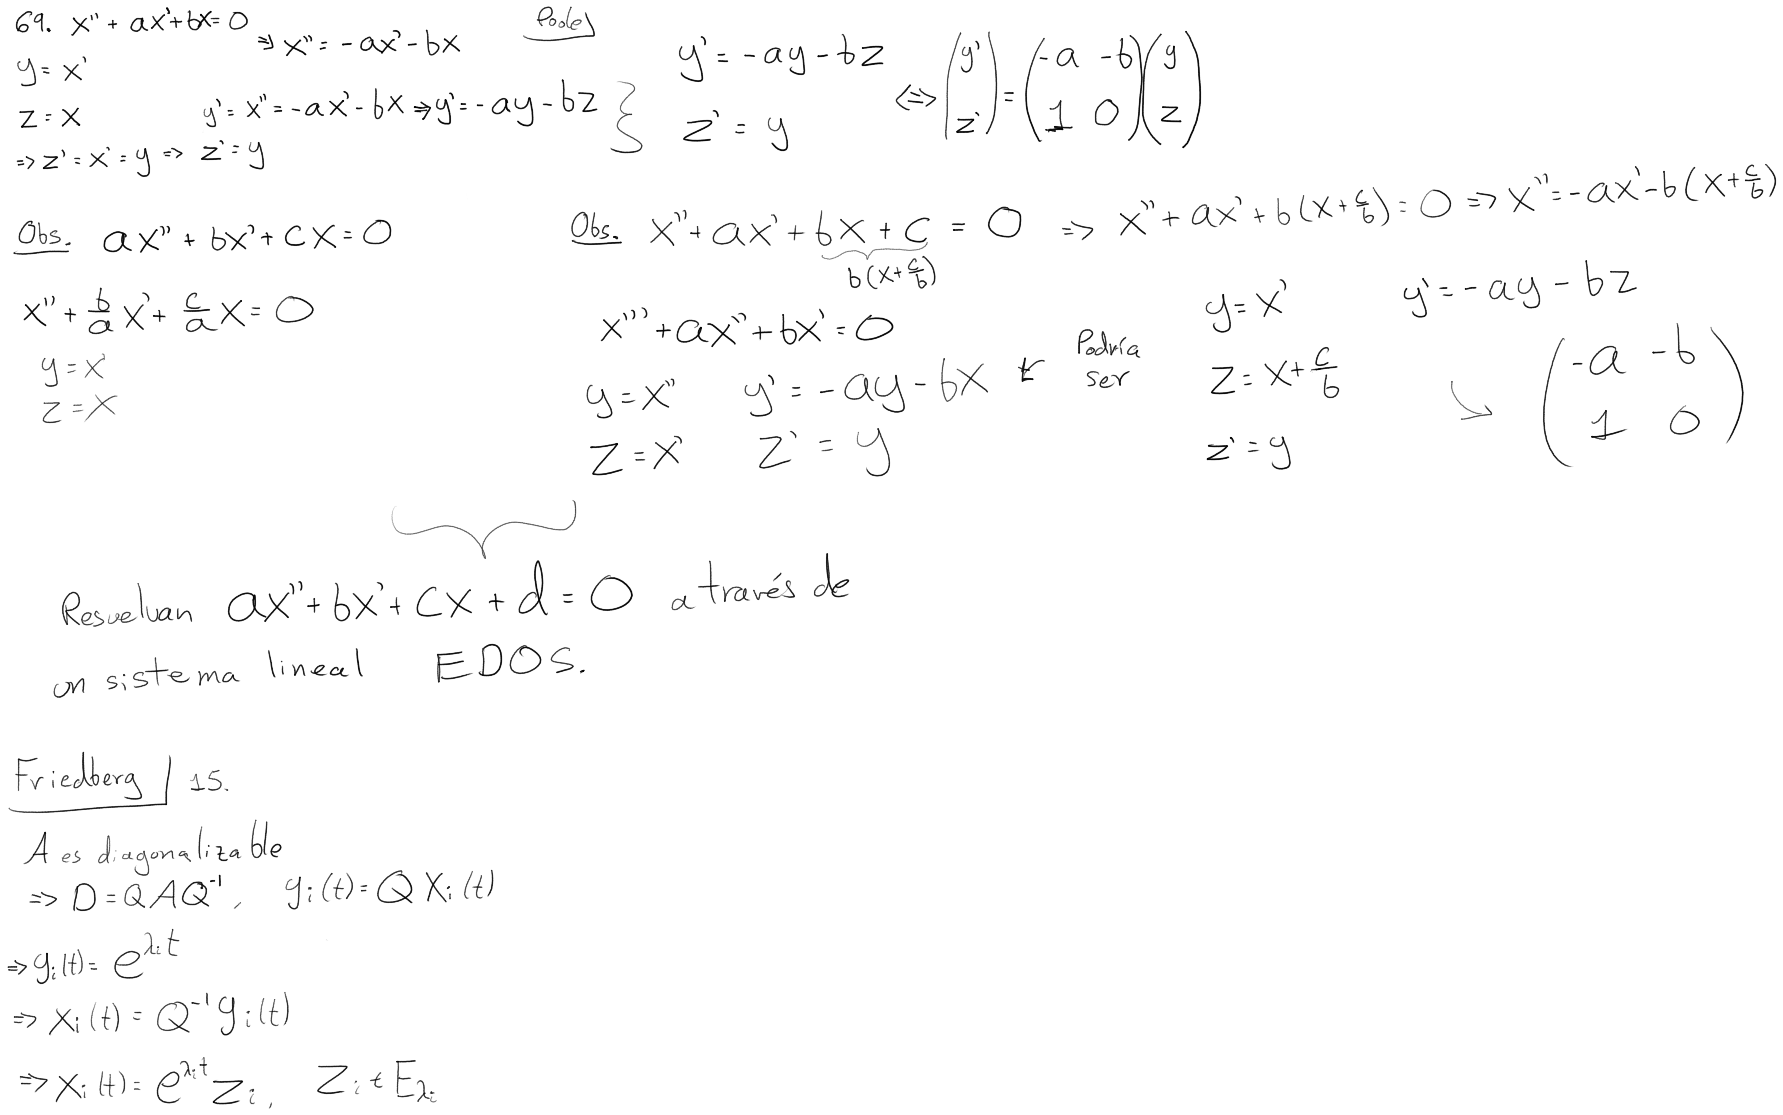 69. x'' + ax' + bx = 0 ⇒ x'' = -ax' - bx
Poole
y = x'
z = x
y' = x'' = -ax' - bx ⇒ y' = -ay - bz
⇒ z' = x' = y ⇒ z' = y
y' = -ay - bz
z' = y
⇔ (y' z') = (-a -b 1 0) (y z)
Obs. ax'' + bx' + cx = 0
x'' + b/a x' + c/a x = 0
y = x'
z = x
Obs. x'' + ax' + bx + c = 0 ⇒ x'' + ax' + b(x + c/b) = 0 ⇒ x'' = -ax' - b(x + c/b)
b(x + c/b)
x''' + ax'' + bx' = 0
y = x'' y' = -ay - bx
z = x' z' = y
Podría
ser
y = x'
z = x + c/b
z' = y
y' = -ay - bz
(-a -b
1 0)
Resuelvan ax'' + bx' + cx + d = 0 a través de
un sistema lineal EDOS.
Friedberg 15.
A es diagonalizable
⇒ D = QAQ⁻¹, yᵢ(t) = Q xᵢ(t)
⇒ yᵢ(t) = e^{λᵢt}
⇒ xᵢ(t) = Q⁻¹ yᵢ(t)
⇒ xᵢ(t) = e^{λᵢt} zᵢ, zᵢ ∈ E_{λᵢ}